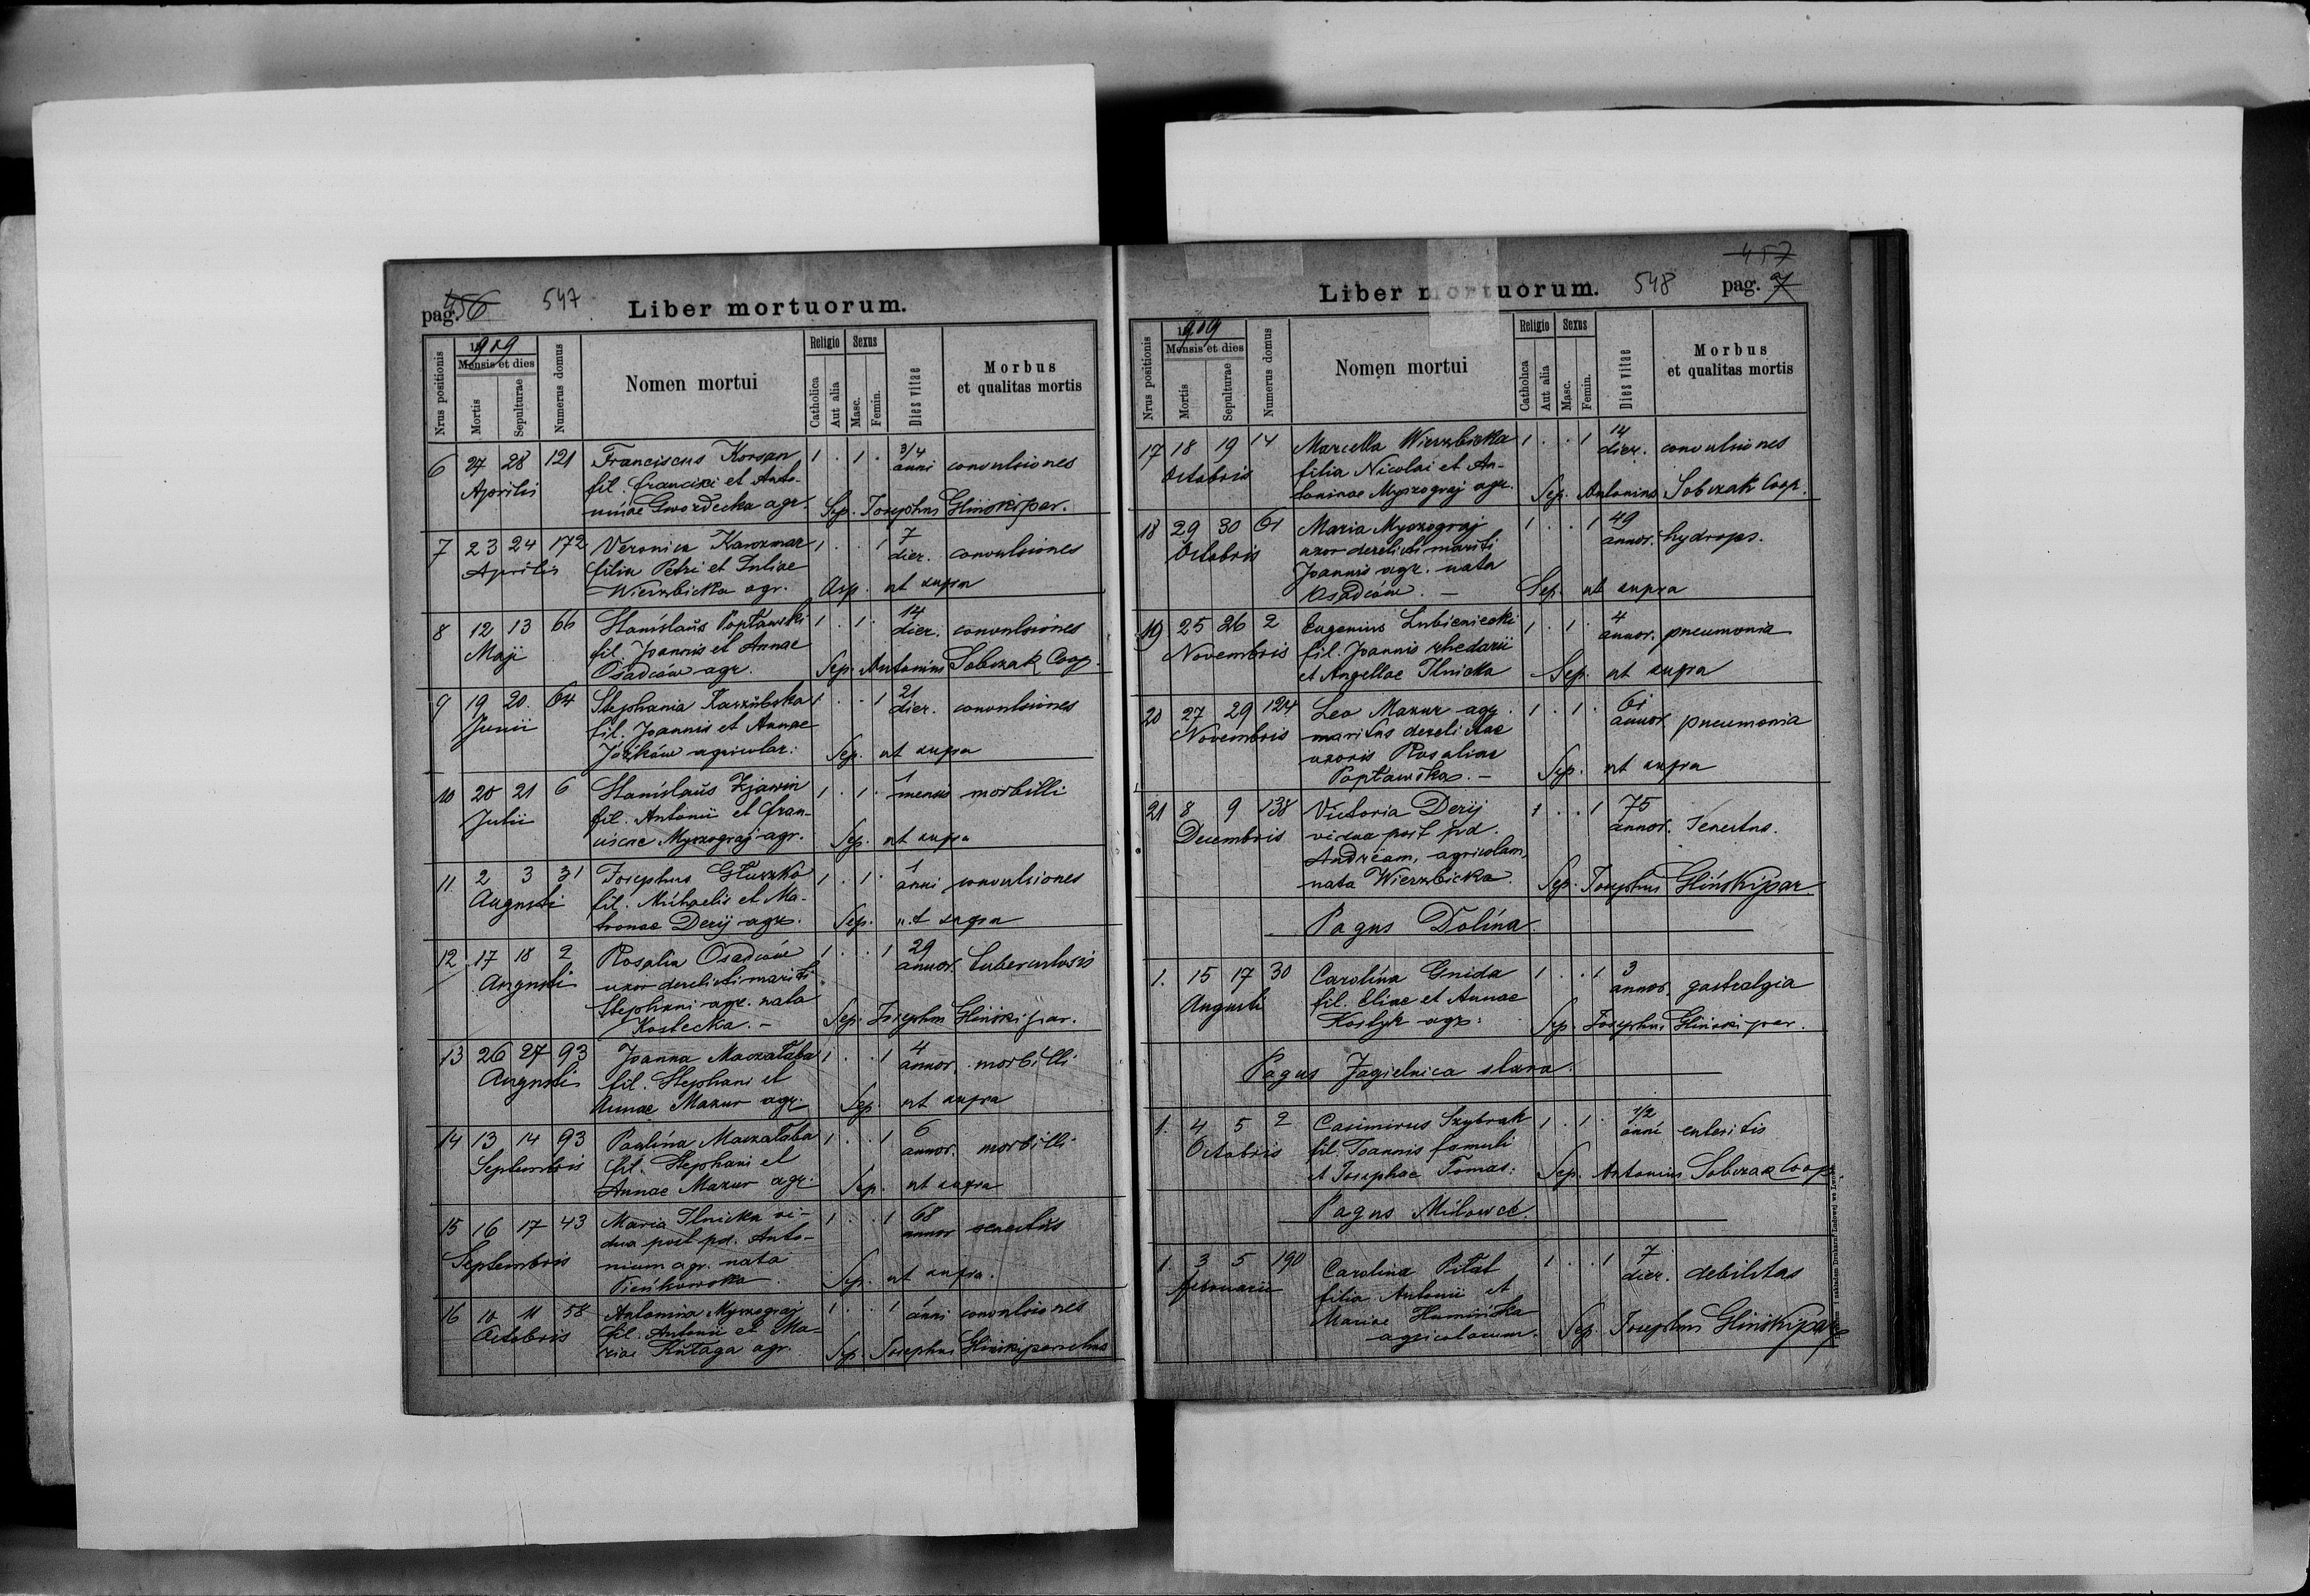 pag. 456 547 Liber mortuorum.
Nrus positionis
1909
Mensis et dies
Mortis
Sepulturae
Numerus domus
Nomen mortui
Religio
Catholica
Aut alia
Sexus
Masc.
Femin.
Dies vitae
Morbus
et qualitas mortis
6 27 28 121 Franciscus Korsan 1 . 1 . 3/4
Aprilis fil. Francisci et Anto- anni convulsiones
ninae Gwozdecka agr. Sep. Josephus Gliński par.
7 23 24 172 Veronica Karczmar 1 . . 1 7
Aprilis filia Petri et Juliae dier. convulsiones
Wierzbicka agr. Asp. ut supra
8 12 13 66 Stanislaus Popławski 1 . 1 . 14
Maji fil. Joannis et Annae dier. convulsiones
Osadców agr. Sep. Antonius Sobczak Coop.
9 19 20. 64 Stephania Kaszubska 1 . . 1 21
Junii fil. Joannis et Annae dier. convulsiones
Józków agricolar: Sep. ut supra
10 20 21 6 Stanislaus Zjawin 1 . 1 . 1
Julii fil. Antonii et Fran- mensis morbilli
ciscae Myszograj agr. Sep. ut supra
11 2 3 31 Josephus Głuszko 1 . 1 . 1
Augusti fil. Michaelis et Ma- anni convulsiones
tronae Derij agr. Sep. ut supra
12 17 18 2 Rosalia Osadców 1 . . 1 29
Augusti uxor derelicti mariti annor. tuberculosis
Stephani agr. nata
Kostecka. - Sep. Josephus Gliński par.
13 26 27 93 Joanna Maczałaba 1 . . 1 4
Augusti fil. Stephani et annor. morbilli
Annae Mazur agr. Sep. ut supra
14 13 14 93 Paulina Maczałaba 1 . . 1 6
Septembris fil. Stephani et annor. morbilli
Annae Mazur agr. Sep. ut supra
15 16 17 43 Maria Ilnicka vi- 1 . . 1 68
dua post pd. Anto- annor senectus
Septembris nium agr. nata
Pieńkowska. Sep. ut supra.
16 10 11 58 Antonina Myszograj 1 . . 1 1
Octobris fil. Antonii et Ma- anni convulsiones
riae Kutaga agr. Sep. Josephus Gliński parochus
Liber mortuorum. 548 457 pag. 7
Nrus positionis
1909
Mensis et dies
Mortis
Sepulturae
Numerus domus
Nomen mortui
Religio
Catholica
Aut alia
Sexus
Masc.
Femin.
Dies vitae
Morbus
et qualitas mortis
17 18 19 14 Marcella Wierzbicka 1 . . 1 14
Octobris filia Nicolai et An- dier. convulsiones
toninae Myszograj agr. Sep. Antonius Sobczak Coop.
18 29 30 61 Maria Myszograj 1 . . 1 49
Octobris uxor derelicti mariti annor. hydrops.
Joannis agr. nata
Osadców. - Sep. ut supra
19 25 26 2 Eugenius Lubieniecki 1 . 1 . 4
Novembris fil. Joannis rhedarii annor. pneumonia
et Angellae Ilnicka Sep. ut supra
20 27 29 124 Leo Mazur agr. 1 . 1 . 61
Novembris maritus derelictae annor pneumonia
uxoris Rosaliae
Popławska. - Sep. ut supra
21 8 9 138 Victoria Derij 1 . . 1 75
Decembris vidua post pd. annor. Senectus.
Andream, agricolam,
nata Wierzbicka. Sep. Josephus Gliński par
Pagus Dolina.
1. 15 17 30 Carolina Gnida 1 . . 1 3
Augusti fil. Eliae et Annae annor. gastralgia
Kostyk agr: Sep. Josephus Gliński par.
Pagus Jagielnica stara.
1. 4 5 2 Casimirus Szybrak 1 . 1 . 1/2
Octobris fil. Joannis famuli anni enteritis
et Josephae Tomas: Sep. Antonius Sobczak Coop
Pagus Milowce.
1. 3 5 190 Carolina Pitał 1 . . 1 7
Februarii filia Antonii et dier. debilitas
Mariae Humińska
agricolarum. Sep. Josephus Gliński par